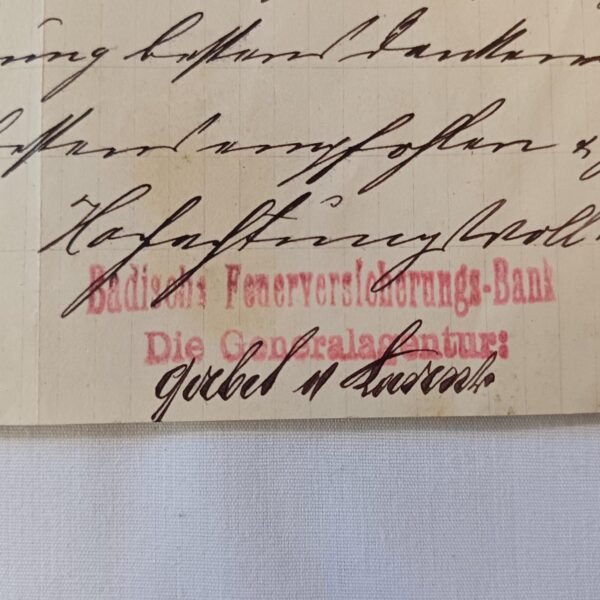 bestens danken
bestens empfohlen &
Hochachtungsvoll
Badische Feuerversicherungs-Bank
Die Generalagentur: